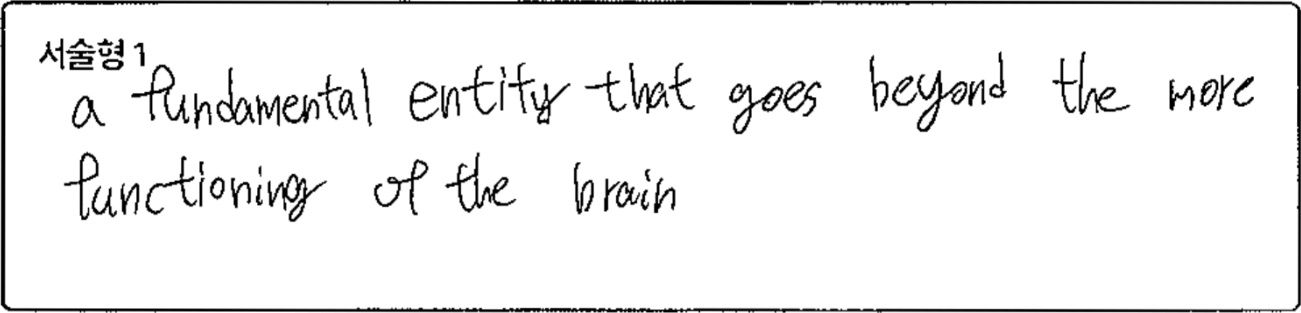 서술형 1
a fundamental entity that goes beyond the more
functioning of the brain